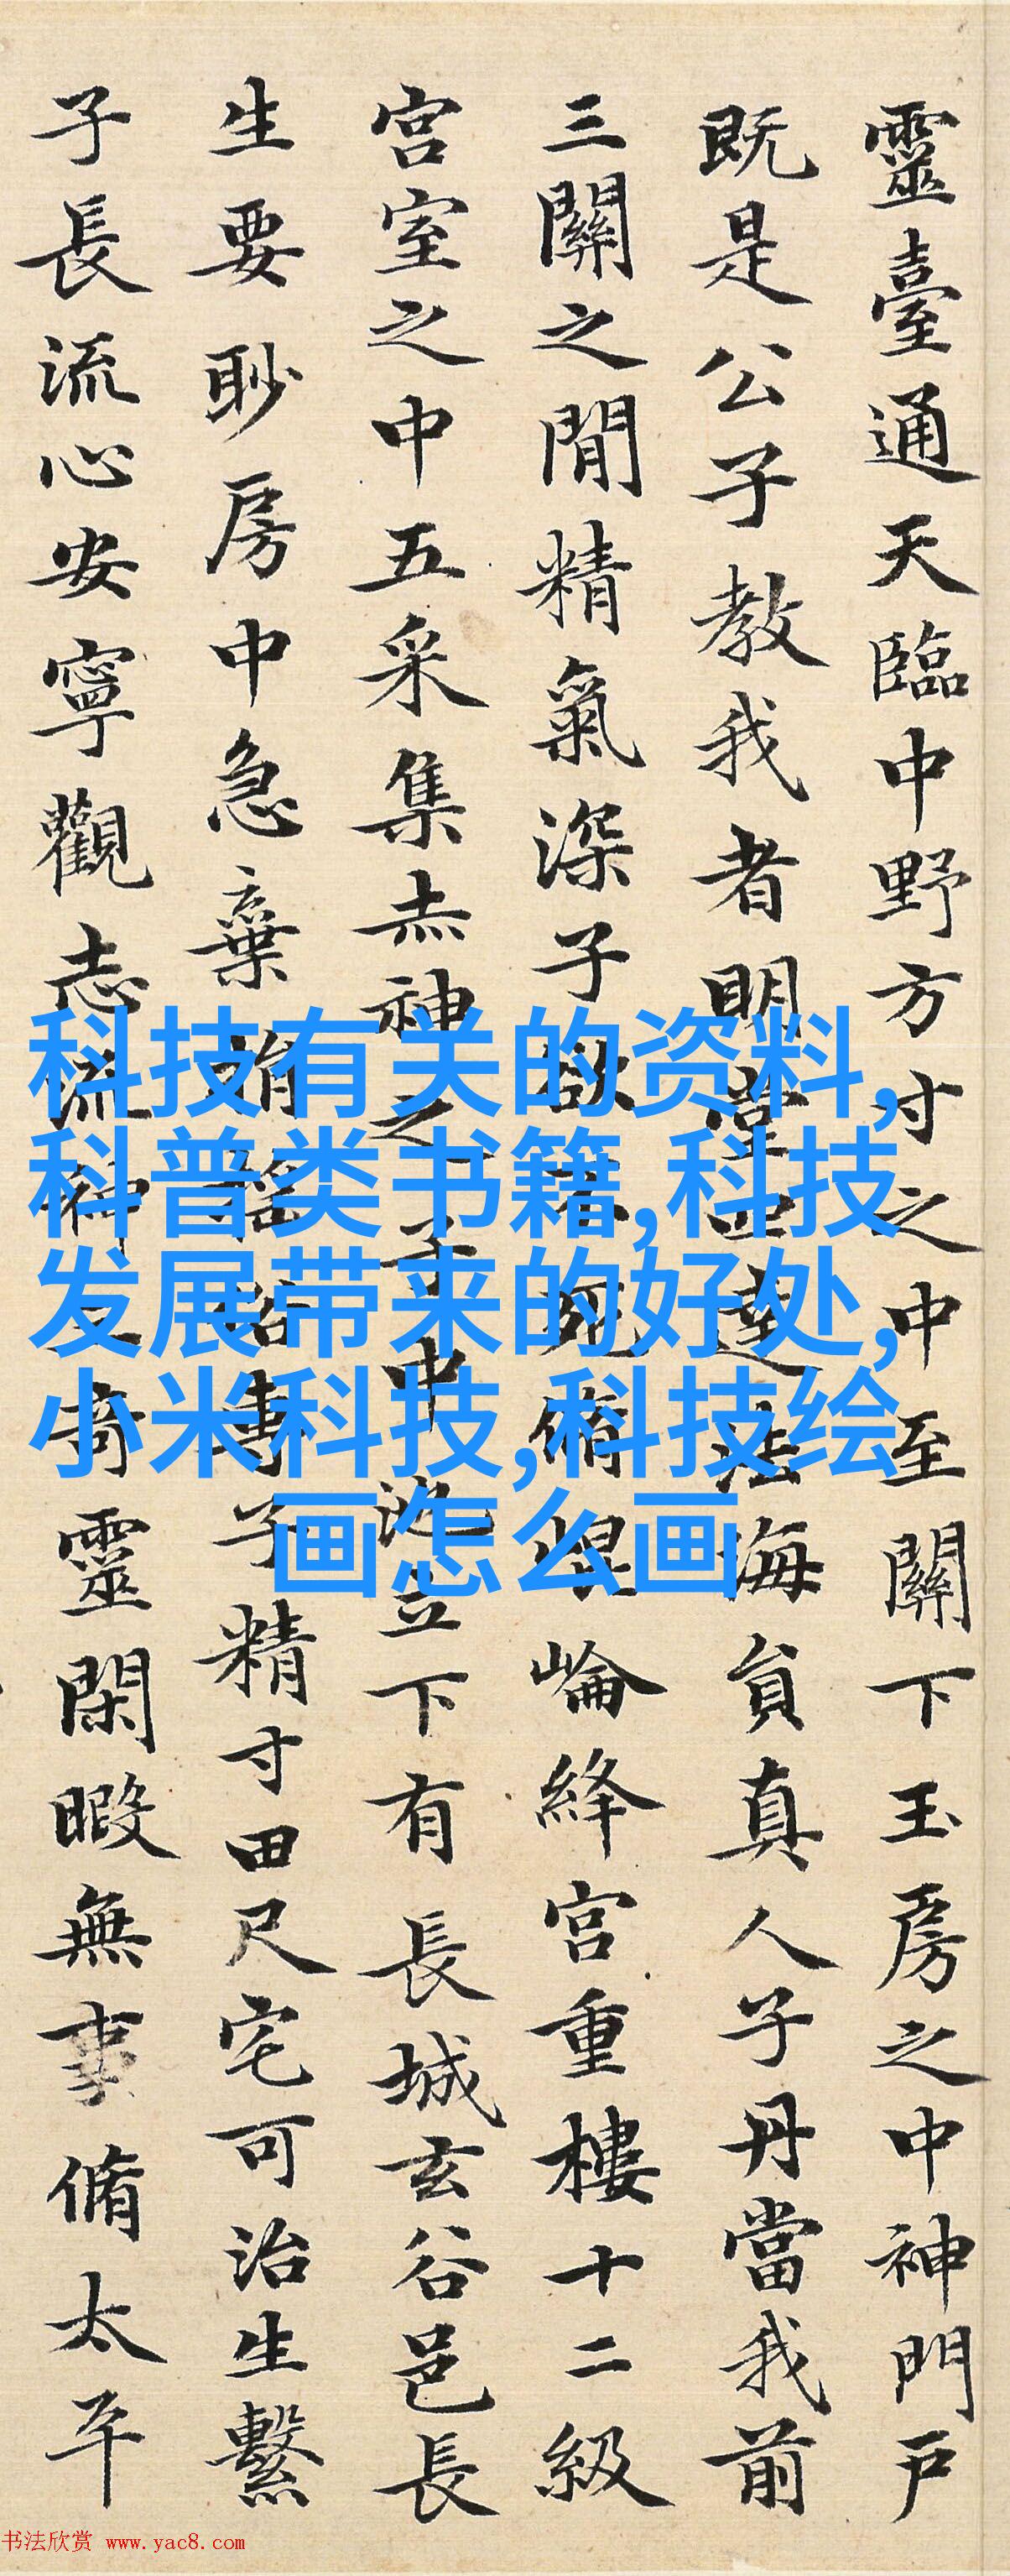 靈臺通天臨中野方寸之中至關下玉房之中神門戶
既是公子教我者明堂四達法海員真人子丹當我前
三關之間精氣深子欲不死脩崐崘絳宮重樓十二級
宮室之中五采集赤神之子中池立下有長城玄谷邑長
生要眇房中急棄捐淫俗專子精寸田尺宅可治生繫
子長流心安寧觀志流神三奇靈閑暇無事脩太平
科技有关的资料,
科普类书籍,科技
发展带来的好处,
小米科技,科技绘
画怎么画
书法欣赏 www.yac8.com